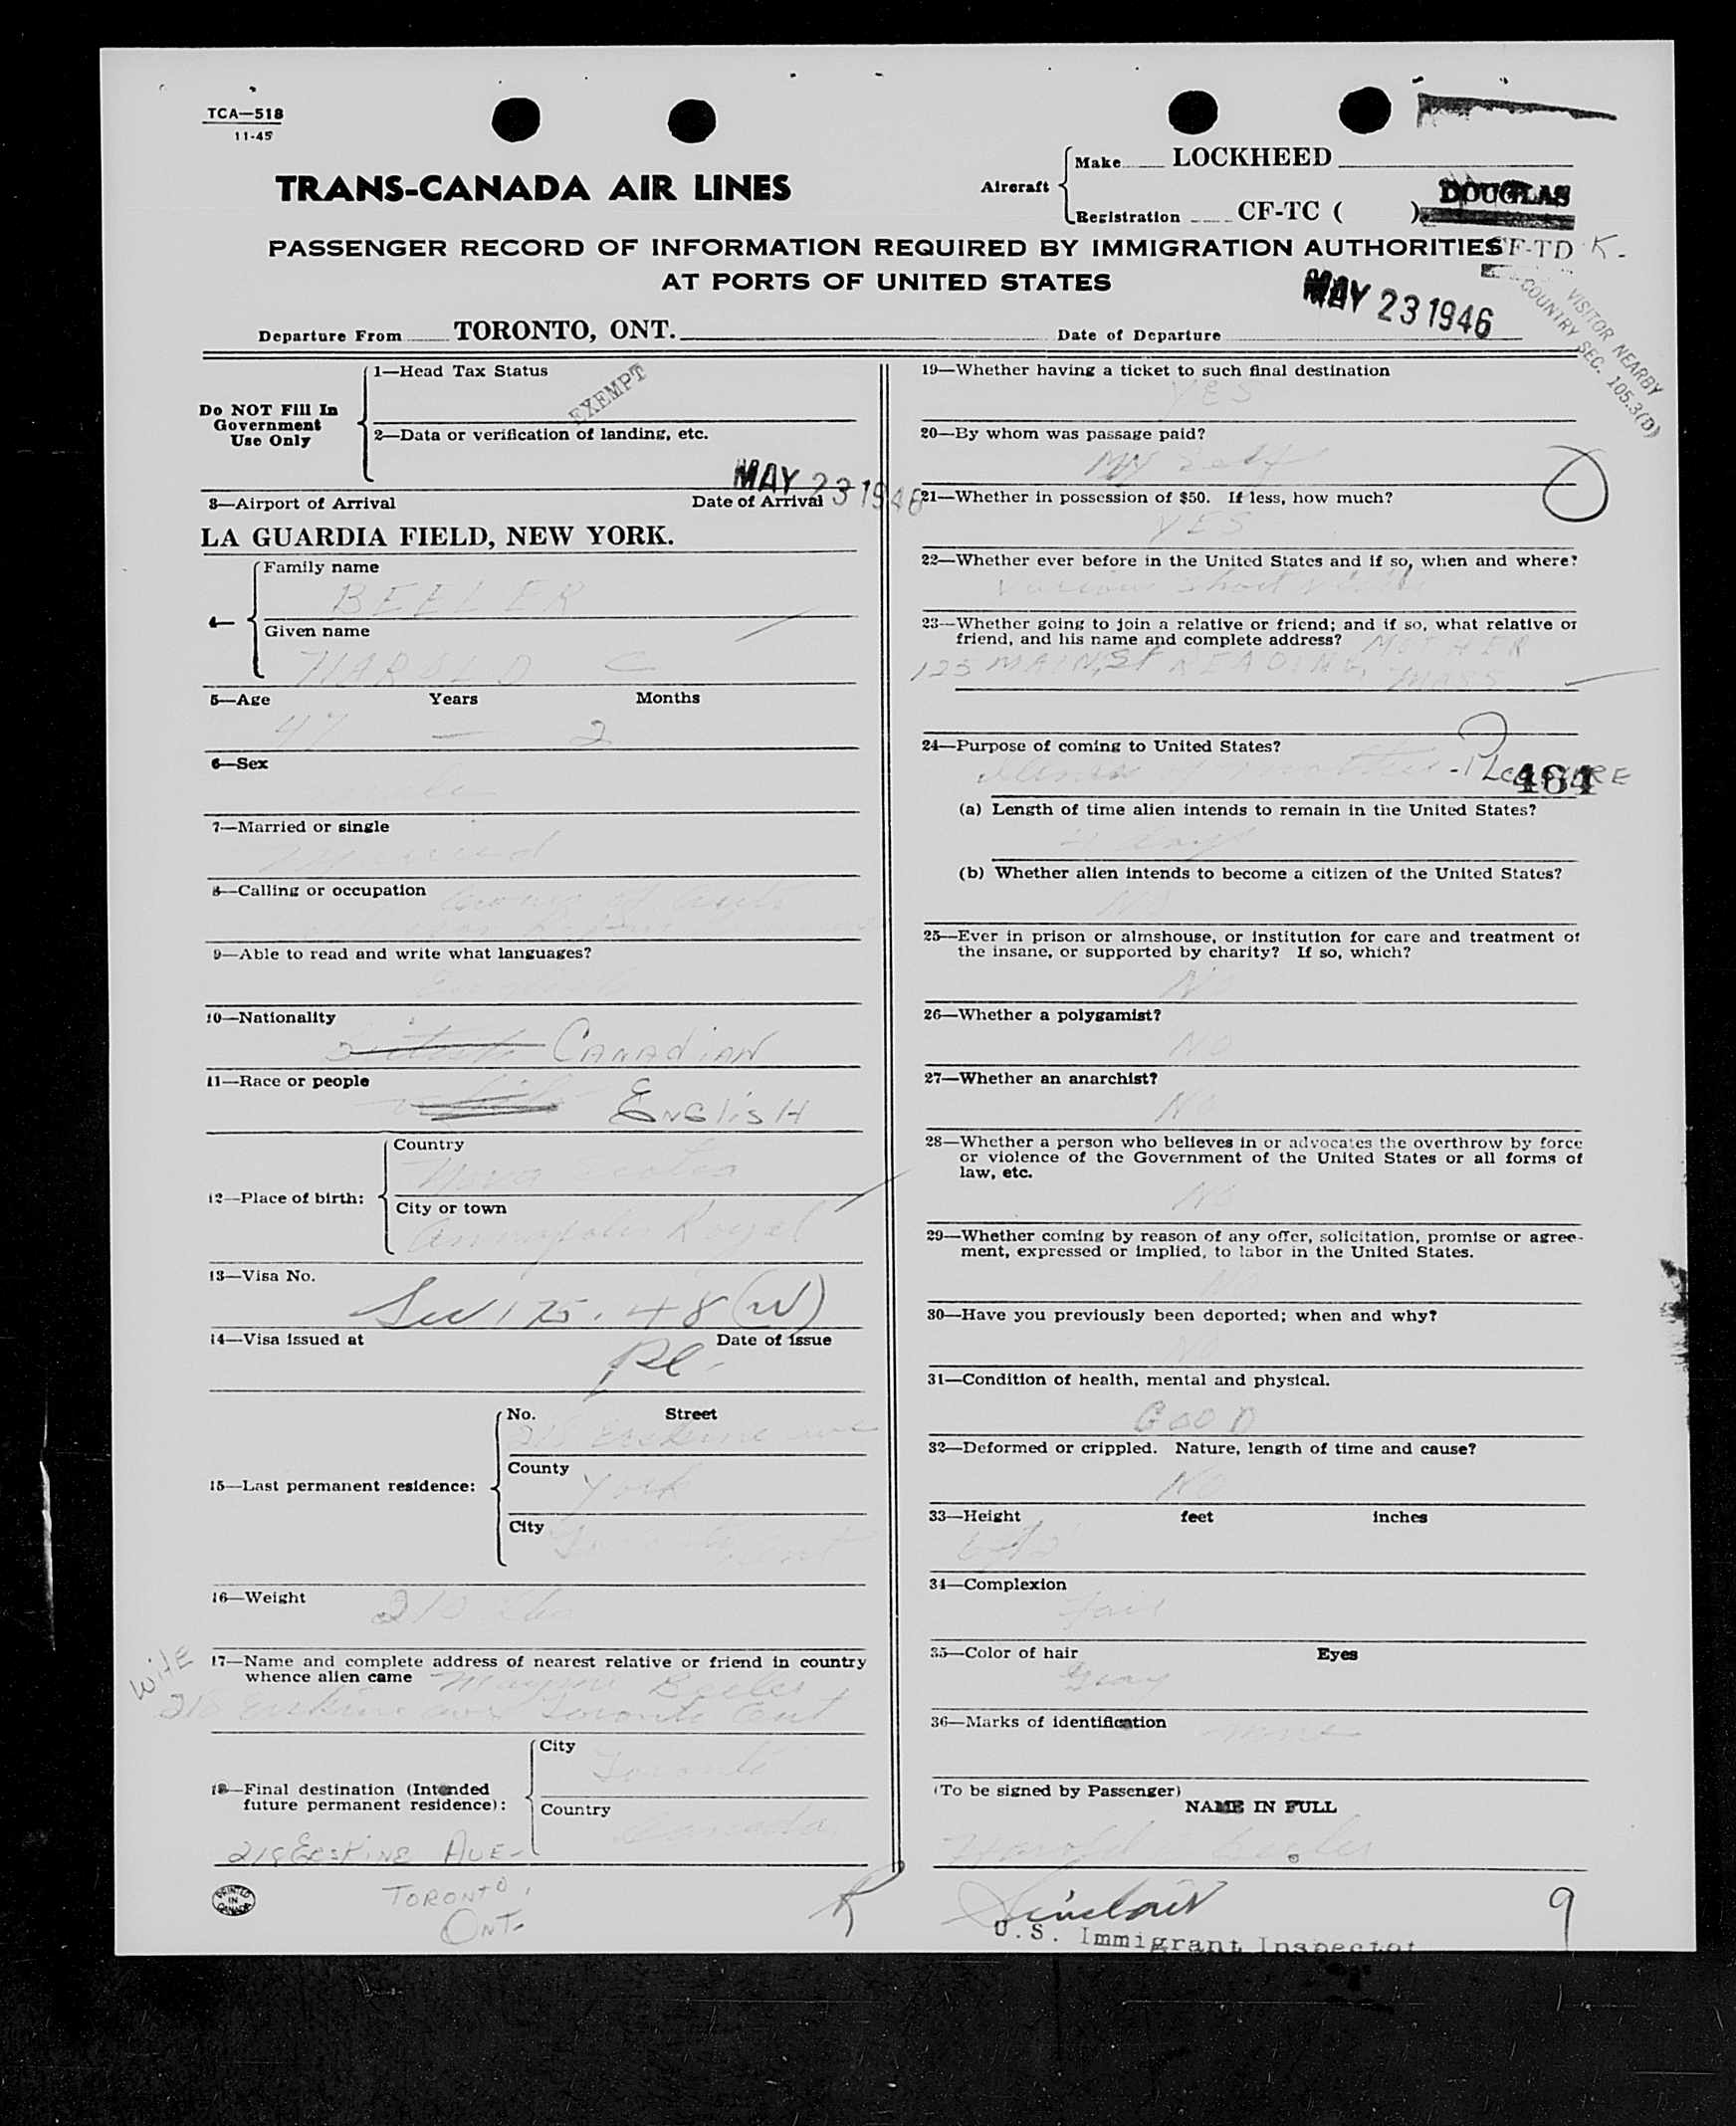 TCA—518
11-45
TRANS-CANADA AIR LINES
Aircraft
Make LOCKHEED
Registration CF-TC ( )
DOUGLAS
CF-TD K-
PASSENGER RECORD OF INFORMATION REQUIRED BY IMMIGRATION AUTHORITIES
AT PORTS OF UNITED STATES
MAY 23 1946
VISITOR NEARBY
COUNTRY SEC. 105.3(D)
Departure From TORONTO, ONT. Date of Departure
Do NOT Fill In
Government
Use Only
1—Head Tax Status
EXEMPT
2—Data or verification of landing, etc.
MAY 23 1946
3—Airport of Arrival Date of Arrival
LA GUARDIA FIELD, NEW YORK.
4—
Family name
BEELER
Given name
HAROLD C
5—Age Years Months
47 — 2
6—Sex
male
7—Married or single
Married
8—Calling or occupation
9—Able to read and write what languages?
English
10—Nationality
CANADIAN
11—Race or people
ENGLISH
12—Place of birth:
Country
Nova Scotia
City or town
Annapolis Royal
13—Visa No.
Sec 175.48 (W)
14—Visa issued at Date of issue
Pl.
15—Last permanent residence:
No. Street
218 Erskine ave
County
York
City
Toronto Ont
16—Weight
210 lbs
WIFE
17—Name and complete address of nearest relative or friend in country
whence alien came Beeler
218 Erskine ave Toronto Ont
18—Final destination (Intended
future permanent residence):
City
Toronto
Country
Canada
218 ERSKINE AVE-
TORONTO,
ONT-
PRINTED
IN
CANADA
19—Whether having a ticket to such final destination
YES
20—By whom was passage paid?
My self
21—Whether in possession of $50. If less, how much?
YES
22—Whether ever before in the United States and if so, when and where?
Various short visits
23—Whether going to join a relative or friend; and if so, what relative or
friend, and his name and complete address? MOTHER
123 MAIN ST READING, MASS
24—Purpose of coming to United States?
Illness of mother - PLEASURE
464
(a) Length of time alien intends to remain in the United States?
4 days
(b) Whether alien intends to become a citizen of the United States?
NO
25—Ever in prison or almshouse, or institution for care and treatment of
the insane, or supported by charity? If so, which?
NO
26—Whether a polygamist?
NO
27—Whether an anarchist?
NO
28—Whether a person who believes in or advocates the overthrow by force
or violence of the Government of the United States or all forms of
law, etc.
NO
29—Whether coming by reason of any offer, solicitation, promise or agree-
ment, expressed or implied, to labor in the United States.
NO
30—Have you previously been deported; when and why?
NO
31—Condition of health, mental and physical.
GOOD
32—Deformed or crippled. Nature, length of time and cause?
NO
33—Height feet inches
34—Complexion
Fair
35—Color of hair Eyes
Gray
36—Marks of identification
none
(To be signed by Passenger)
NAME IN FULL
Harold Beeler
Sinclair
U.S. Immigrant Inspector
9